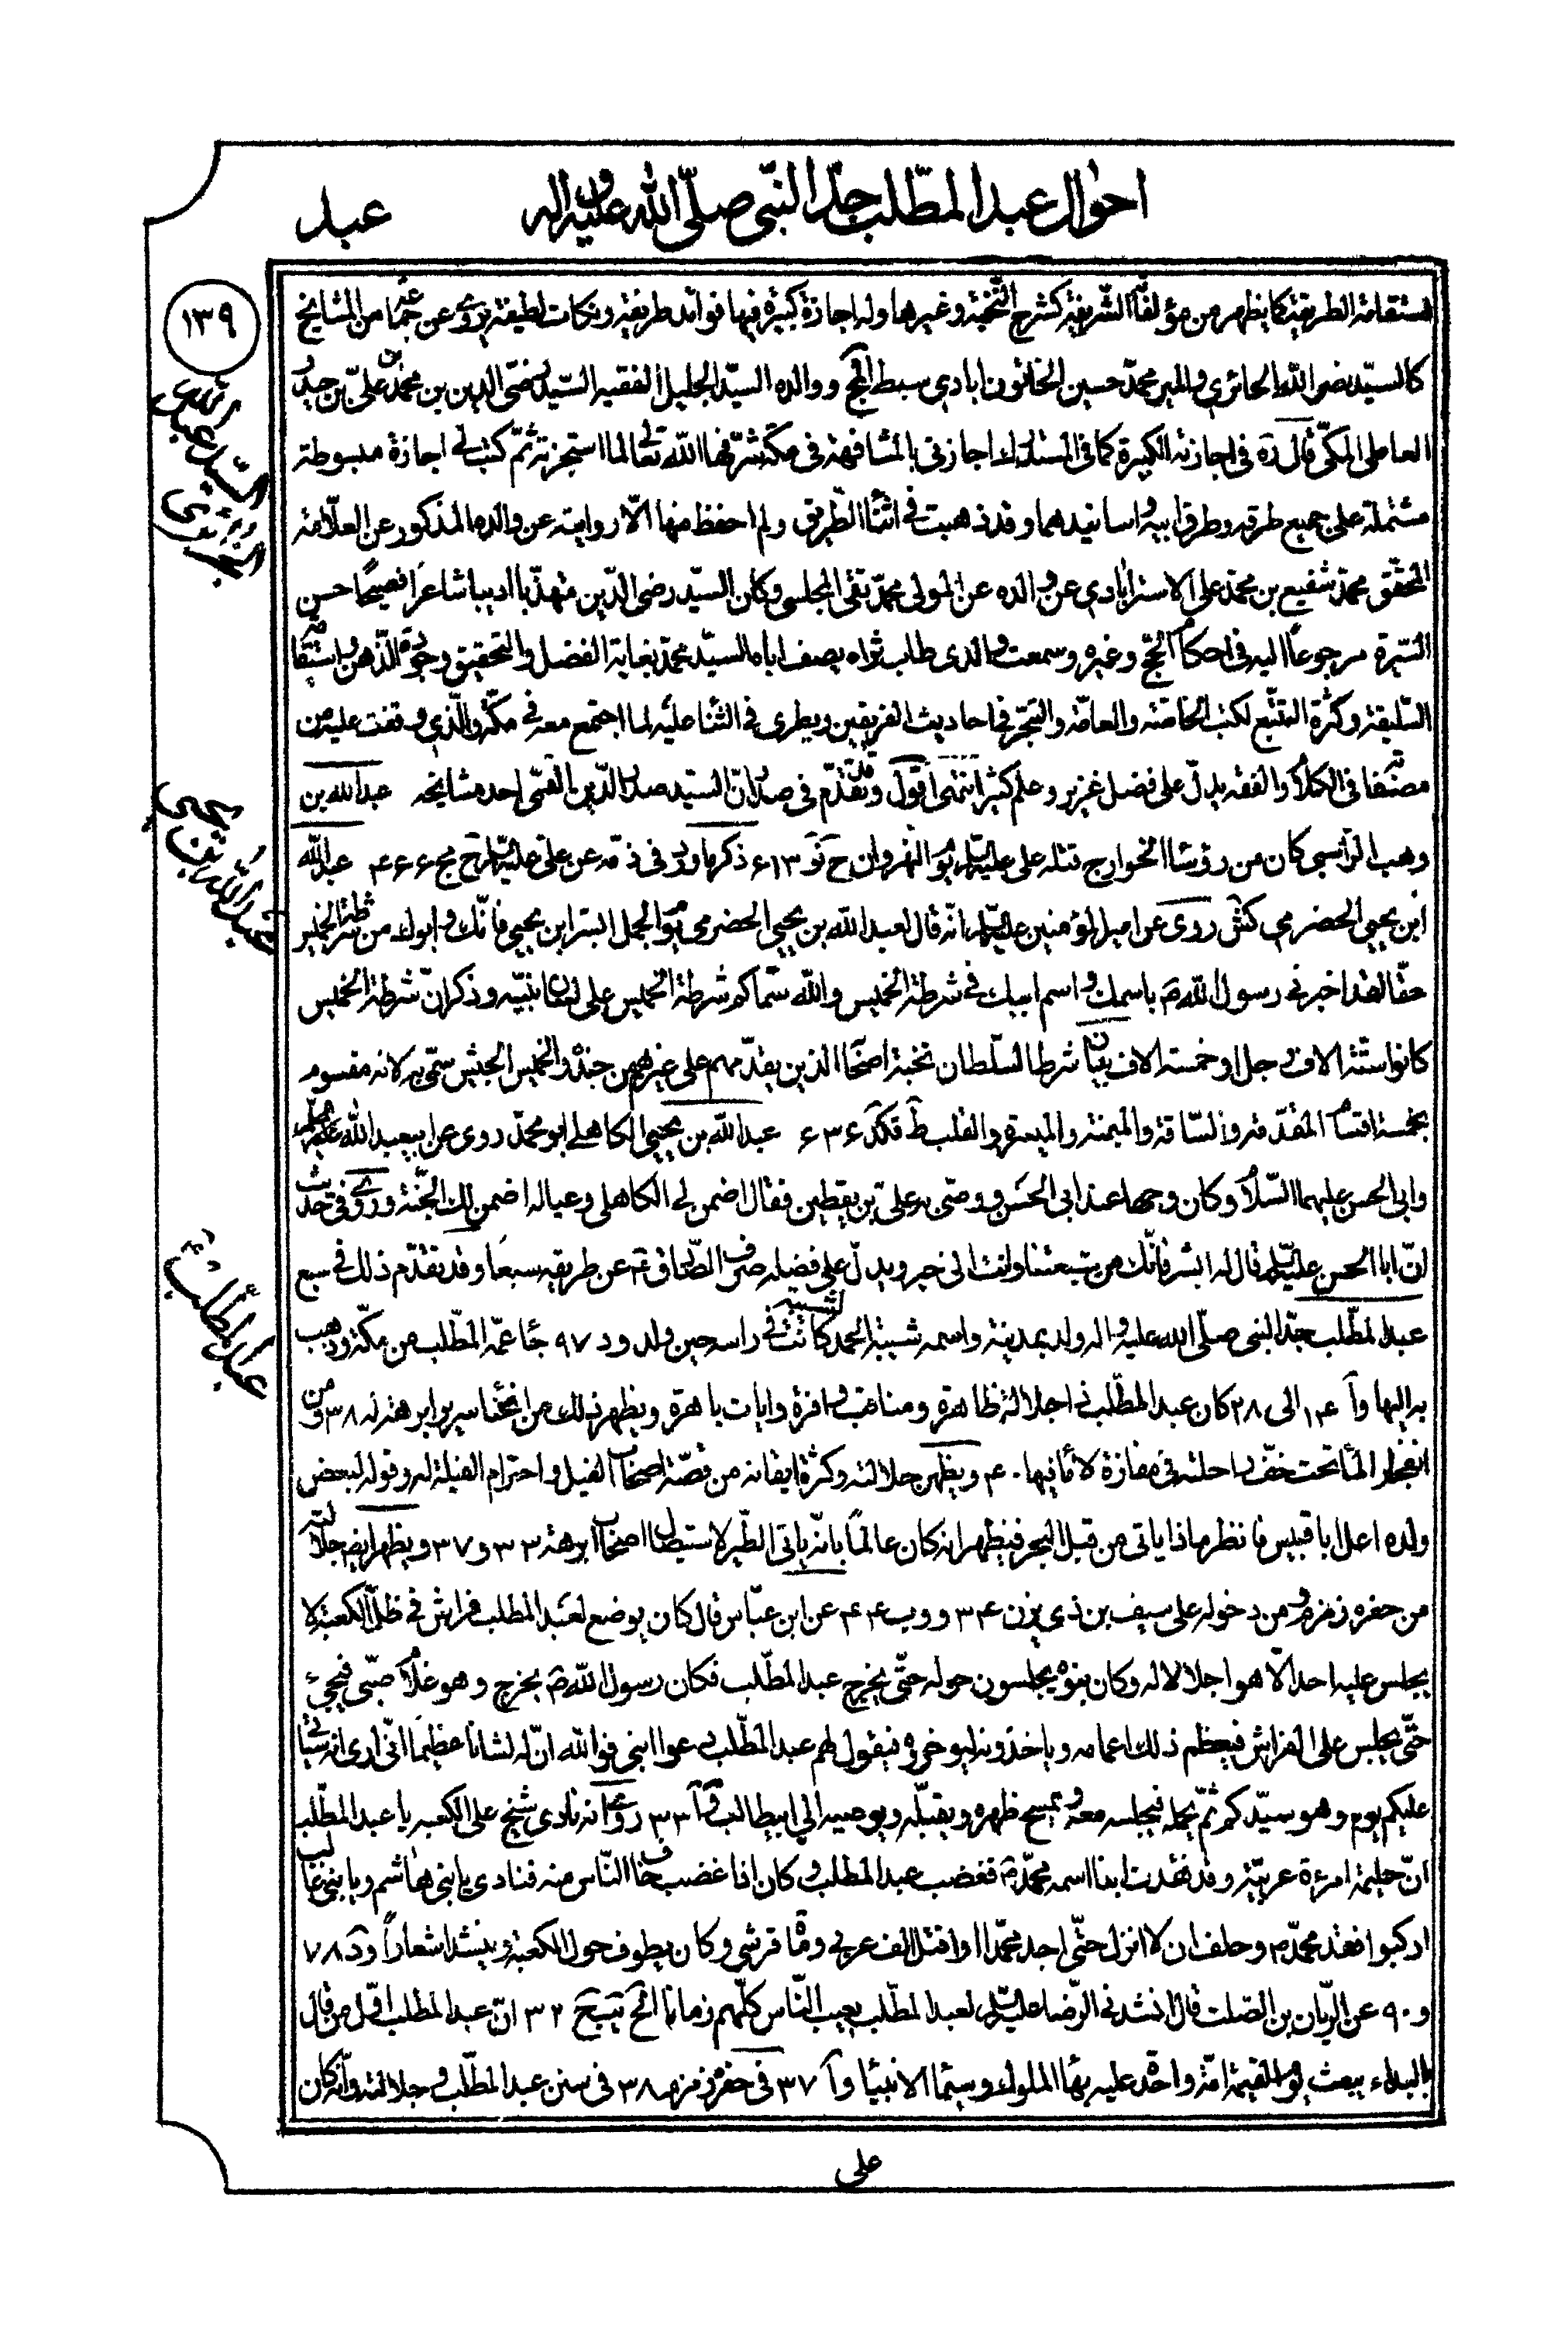 احوال عبد المطّلب جدّ النبّی صلّی الله علیه و اله
عبد
۱۳۹
مستقامة الطریقة کما یظهر من مؤلفا الشّریفة کشرح النّخبة و غیرها وله اجازة کبیرة فیها فوائد طریفة و نکات لطیفة یروی عن جمّا من المشایخ
کالسیّد نصر الله الحائری والمیر محمّد حسین الخاتون ابادی سبط المج ووالده السیّد الجلیل الفقیه السّید رضی الدین بن محمّد بن علیّ بن حیدر
العاملی المکّی قال ره فی اجازته الکبیرة کما فی المستدرك اجازنی بالمشافهة فی مکّة شرّفها الله تعالی لما استجزته ثمّ کتب لی اجازة مبسوطة
مشتملة علی جمیع طرقه وطرق ابیه و اسانیدهما وقد ذهبت فی اثناء الطّریق ولم احفظ منها الّا روایته عن والده المذکور عن العلّامة
المحقّق محمّد شفیع بن محمّد علی الاسترابادی عن والده عن المولی محمّد تقی المجلسی وکان السیّد رضی الدّین مهذّبا ادیبا شاعرا فصیحًا حسن
السّیرة مرجوعًا الیه فی احکام الحجّ وغیره وسمعت والدی طاب ثراه یصف اباه السیّد محمّد بغایة الفضل والتحقیق وجودة الذّهن واستقامة
السّلیقة وکثرة التتبّع لکتب الخاصّة والعامّة والتبحّر فی احادیث الفریقین ویطری فی الثناء علیه لما اجتمع معه فی مکّة والّذی وقفت علیه من
مصنّفاته فی الکلام والفقه یدلّ علی فضل غزیر وعلم کثیر انتهی اقول وقد تقدّم فی صدر انّ السیّد صدر الدّین القمّی احد مشایخه عبد الله بن
وهب الرّاسبی کان من رؤساء الخوارج قتله علی علیه السّلم یوم النهروان ح نو ۶۱۳ ذکر ما ورد فی ذمّه عن علیّ علیه السّلم ح مج ۴۶۶ عبد الله
ابن یحیی الحضرمی کش روی عن امیر المؤمنین علیه السّلم انّه قال لعبد الله بن یحیی الحضرمی یوم الجمل ابشر ابن یحیی فانّك وابوك من شرطة الخمیس
حقّا لقد اخبرنی رسول اللهص باسمك واسم ابیك فی شرطة الخمیس والله سمّاکم شرطة الخمیس علی لسان نبیّه وذکر انّ شرطة الخمیس
کانوا ستّة الاف رجل او خمسة الاف بیان شرط السّلطان نخبة اصحابه الذین یقدّمهم علی غیرهم من جنده والخمیس الجیش سمّی به لانه مقسوم
بخمسة اقسام المقدّمة والسّاقة والمیمنة والمیسرة والقلب ط قکد ۶۳۶ عبد الله بن یحیی الکاهلی ابو محمّد روی عن ابی عبد الله علیه السّلم
وابی الحسن علیهما السّلام وکان وجها عند ابی الحسن ووصّی به علیّ بن یقطین فقال اضمن لی الکاهلی وعیاله اضمن لك الجنّة وروی فی حدیث
انّ ابا الحسن علیه السّلم قال له ابشر فانّك من شیعتنا وانت الی خیر ویدلّ علی فضله صرف الصّادق ع عن طریقه سبعًا وقد تقدّم ذلك فی سبع
عبد المطّلب جدّ النبی صلّی الله علیه واله ولد بمدینة واسمه شیبة الحمد کانت لشیبة فی راسه حین ولد ود ۹۷ جاء عمّه المطّلب من مکّة وذهب
به الیها وآ ۱۴ الی ۲۸ کان عبد المطّلب فی اجلالة ظاهرة ومناقب وافرة وایات باهرة ویظهر ذلك من انحناء سریر ابرهة له ۳۸ ومن
انفجار الماء تحت خفّ راحلته فی مفازة لا ماء فیها ۴۰ ویظهر جلالته وکثرة ایقانه من قصّة اصحاب الفیل واحترام الفیلة له وقوله لبعض
ولده اعل ابا قبیس فانظر ماذا یاتی من قبل البحر فیظهر انه کان عالمًا بانّه یاتی الطّیر لاستیصال اصحاب ابرهة ۳۳ و ۳۷ ویظهر ایضا جلالته
من حفره زمزم ومن دخوله علی سیف بن ذی یزن ۳۴ و وب ۴۴ عن ابن عبّاس قال کان یوضع لعبد المطلب فراش فی ظلّ الکعبة لا
یجلس علیه احد الّا هو اجلالا له وکان بنوه یجلسون حوله حتّی یخرج عبد المطّلب فکان رسول الله ص یخرج وهو غلام صبّی فیجیء
حتّی یجلس علی الفراش فیعظم ذلك اعمامه ویاخذونه لیؤخروه فیقول لهم عبد المطّلب دعوا ابنی فوالله انّ له لشانا عظیما انّی اری انه سیاتی
علیکم یوم وهو سیّدکم ثمّ یحمله فیجلسه معه ویمسح ظهره ویقبّله ویوصیه الی ابیطالب وآ ۳۳ روی انه نادی شیخ علی الکعبه یا عبد المطّلب
انّ حلیمة امرءة عربیّة وقد فقدت ابنا اسمه محمّد ص فغضب عبد المطلب وکان اذا غضب خاف النّاس منه فنادی یا بنی هاشم ویا بنی غالب
ارکبوا فقد محمّد ص وحلف ان لا انزل حتّی اجد محمّدا او اقتل الف عربی ومائة قرشی وکان یطوف حول الکعبة وینشد اشعاراً ود ۷۸
و ۹۰ عن الرّیان بن الصّلت قال انشدنی الرّضا علیه السّلم لعبد المطّلب یعیب النّاس کلّهم زمانا الخ یج ۳۲ انّ عبد المطلب اوّل من قال
بالبداء یبعث یوم القیمة امّة واحدة علیه بهاء الملوك وسیماء الانبیاء وآ ۳۷ فی حفره زمزم ۳۸ فی سنن عبد المطّلب وجلالته وانّه کان
السیّد عبد الله التستری الجزائری
عبد الله بن یحیی
عبد المطلب
علی